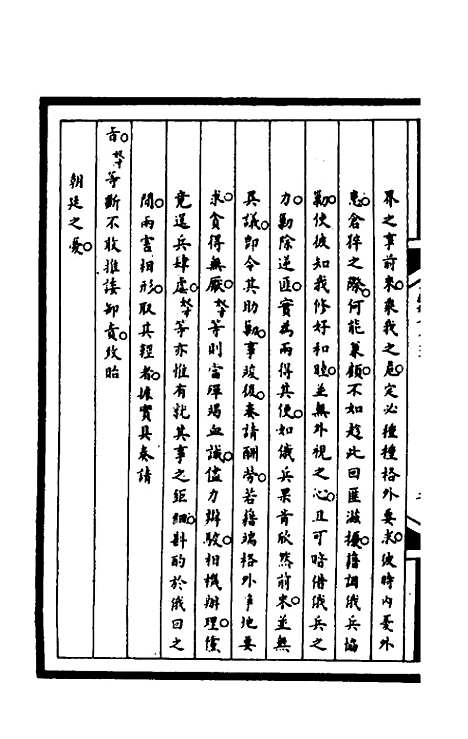 界之事前来。乘我之危。定必種種格外要求。彼時内憂外
患。倉猝之際。何能兼顧。不如趁此回匪滋擾。藉調俄兵協
勦。使彼知我修好和睦。並無外視之心。且可略借俄兵之
力。勦除逆匪。實為兩得其便。如俄兵果肯欣然前来。並無
異議。即令其助勦。事竣後。奏請酬勞。若藉端格外爭地要
求。貪得無厭。奴才等則當殫竭血誠。儘力辦駁。相機辦理。儻
竟逞兵肆虐。奴才等亦惟有就其事之鉅細。斟酌於俄回之
間。兩害相形。取其輕者。據實具奏請
旨。奴才等斷不敢推諉卸責。致貽
朝廷之憂。